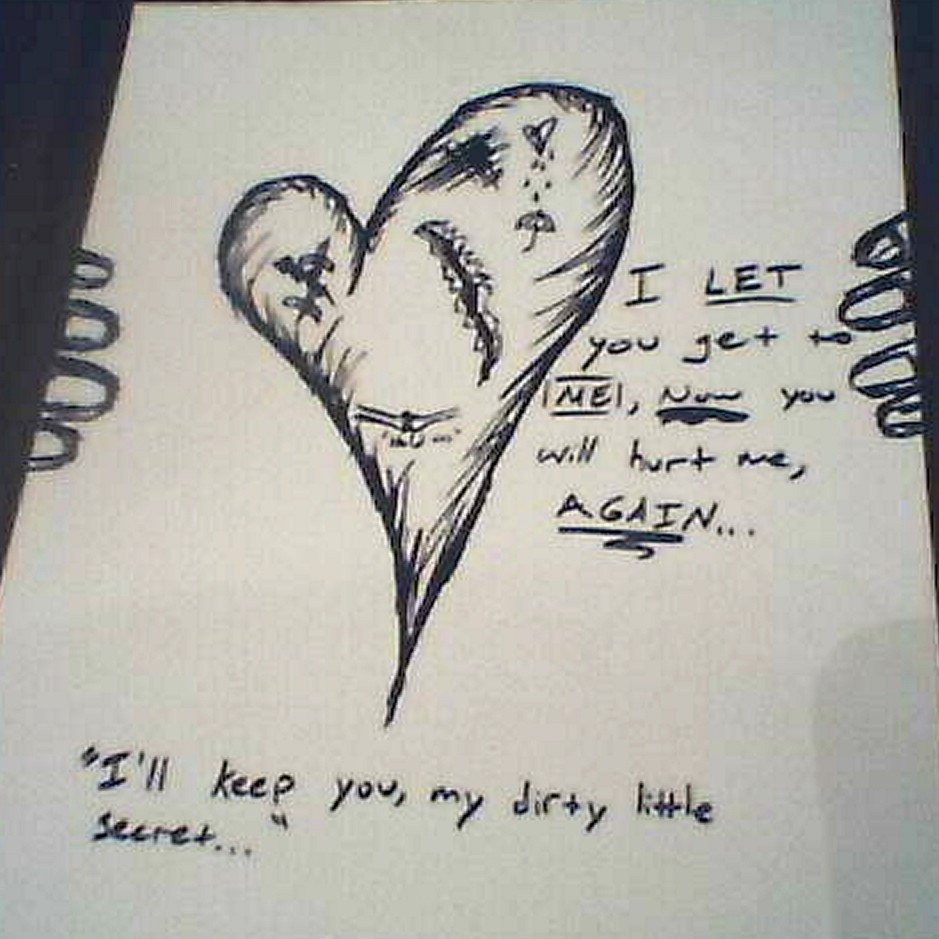 I LET
you get to
|ME|, Now you
will hurt me,
AGAIN...
"I'll keep you, my dirty little
secret..."